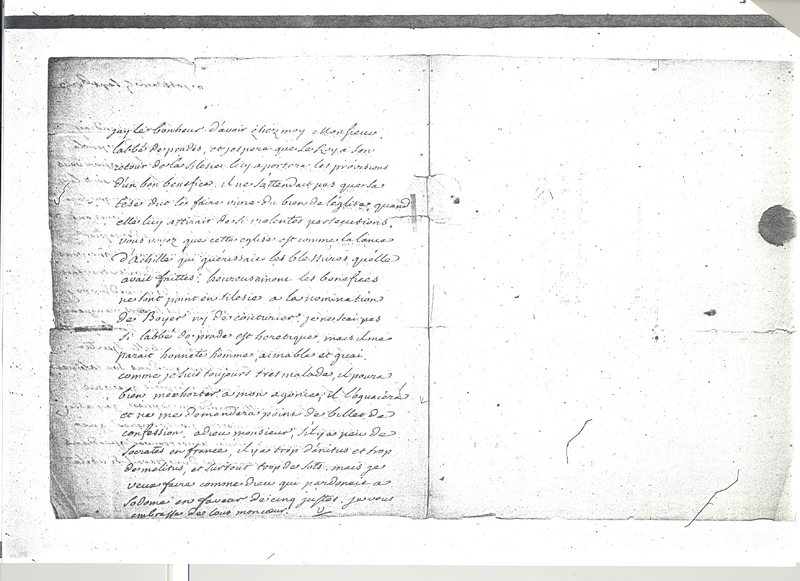 jay le bonheur d'avoir chez moy Monsieur
labbé de prades, et jespere que le Roy a son
retour de la silesie luy aportera les provisions
d'un bon benefice, il ne s'attendait pas que sa
tese dut le faire vivre du bien de l'église, quand
elle luy attirait de si violentes persecutions.
vous voyez que cette eglise est comme la lance
d'Achille qui guérissait les blessures quelle
avait faittes: heureusement les benefices
ne sont point en silesie a la nomination
de Boyer ny de couturier. je ne scai pas
si labbé de prade est heretique, mais il me
parait honnête homme, aimable et guai.
comme je suis toujours tres malade, il poura
bien mexhorter a mon agonie, il l'éguaiera
et ne me demandera point de billet de
confession. adieu monsieur, s'il y a peu de
socrates en france, il y a trop d'anitus et trop
de melitus, et surtout trop de sots. mais je
veux faire comme dieu qui pardonait a
sodome en faveur de cinq justes. je vous
embrasse de tout mon cœur. V